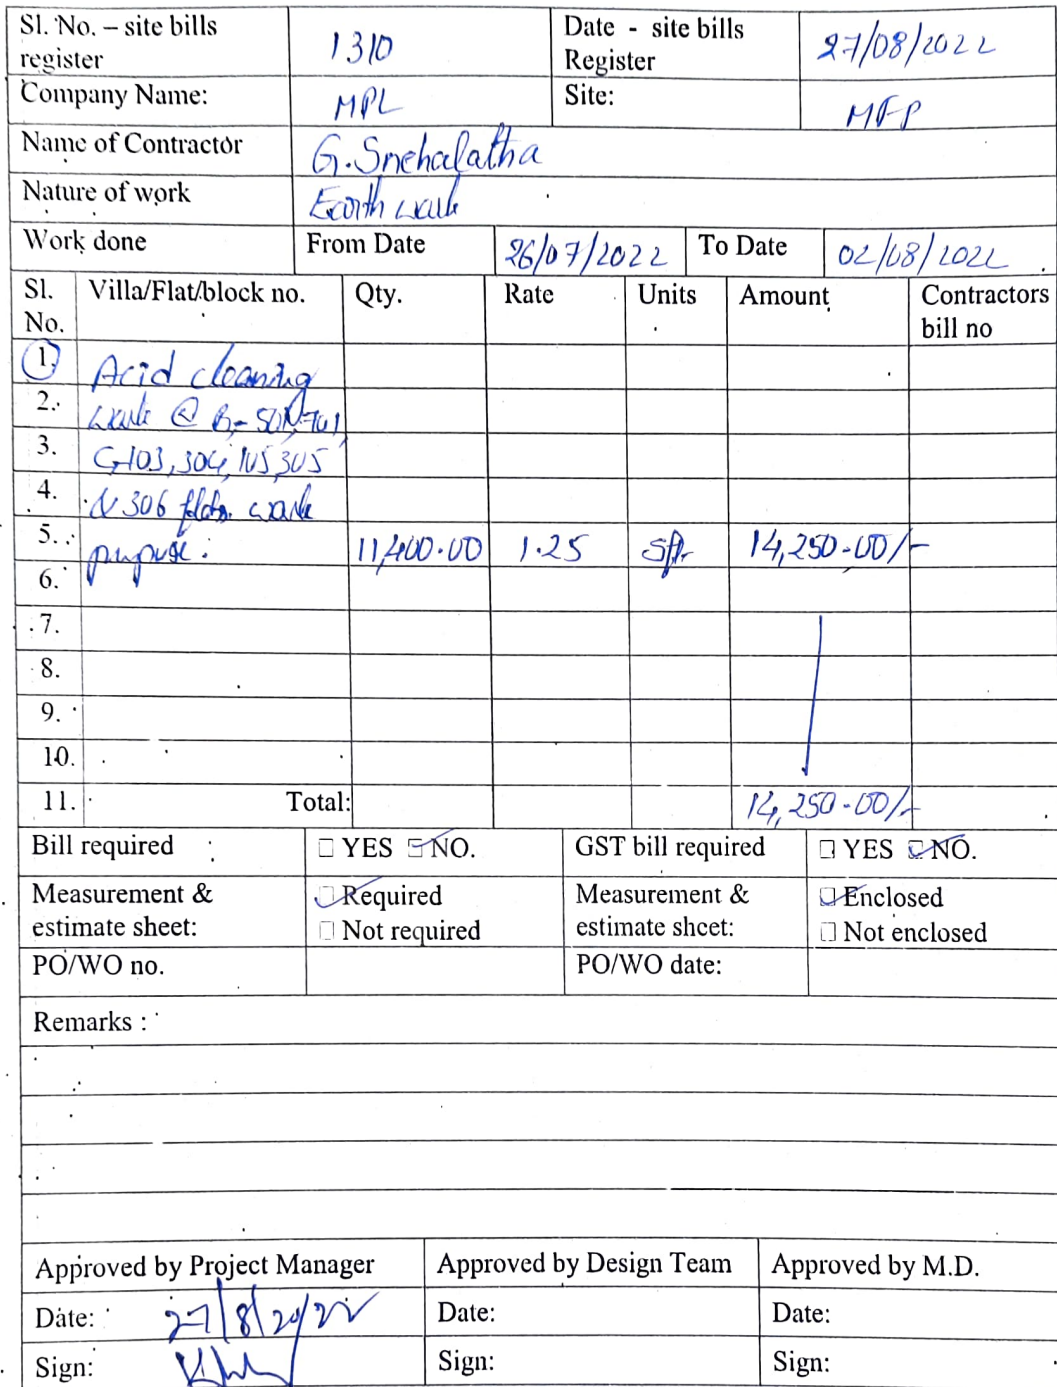 Sl. No. – site bills register 1310 Date - site bills Register 27/08/2022
Company Name: MPL Site: MFP
Name of Contractor G. Snehalatha
Nature of work Earth work
Work done From Date 26/07/2022 To Date 02/08/2022
Sl. No. Villa/Flat/block no. Qty. Rate Units Amount Contractors bill no
1. Acid cleaning
2. work @ B-
3. C-103, 304, 105, 305
4. & 306 flats work
5. purpose. 11,400.00 1.25 sft. 14,250-00/-
6.
7.
8.
9.
10.
11. Total: 14,250-00/-
Bill required □ YES □ NO. GST bill required □ YES □ NO.
Measurement & estimate sheet: □ Required □ Not required Measurement & estimate sheet: □ Enclosed □ Not enclosed
PO/WO no. PO/WO date:
Remarks :
Approved by Project Manager Approved by Design Team Approved by M.D.
Date: 27/8/2022 Date: Date:
Sign: Sign: Sign: